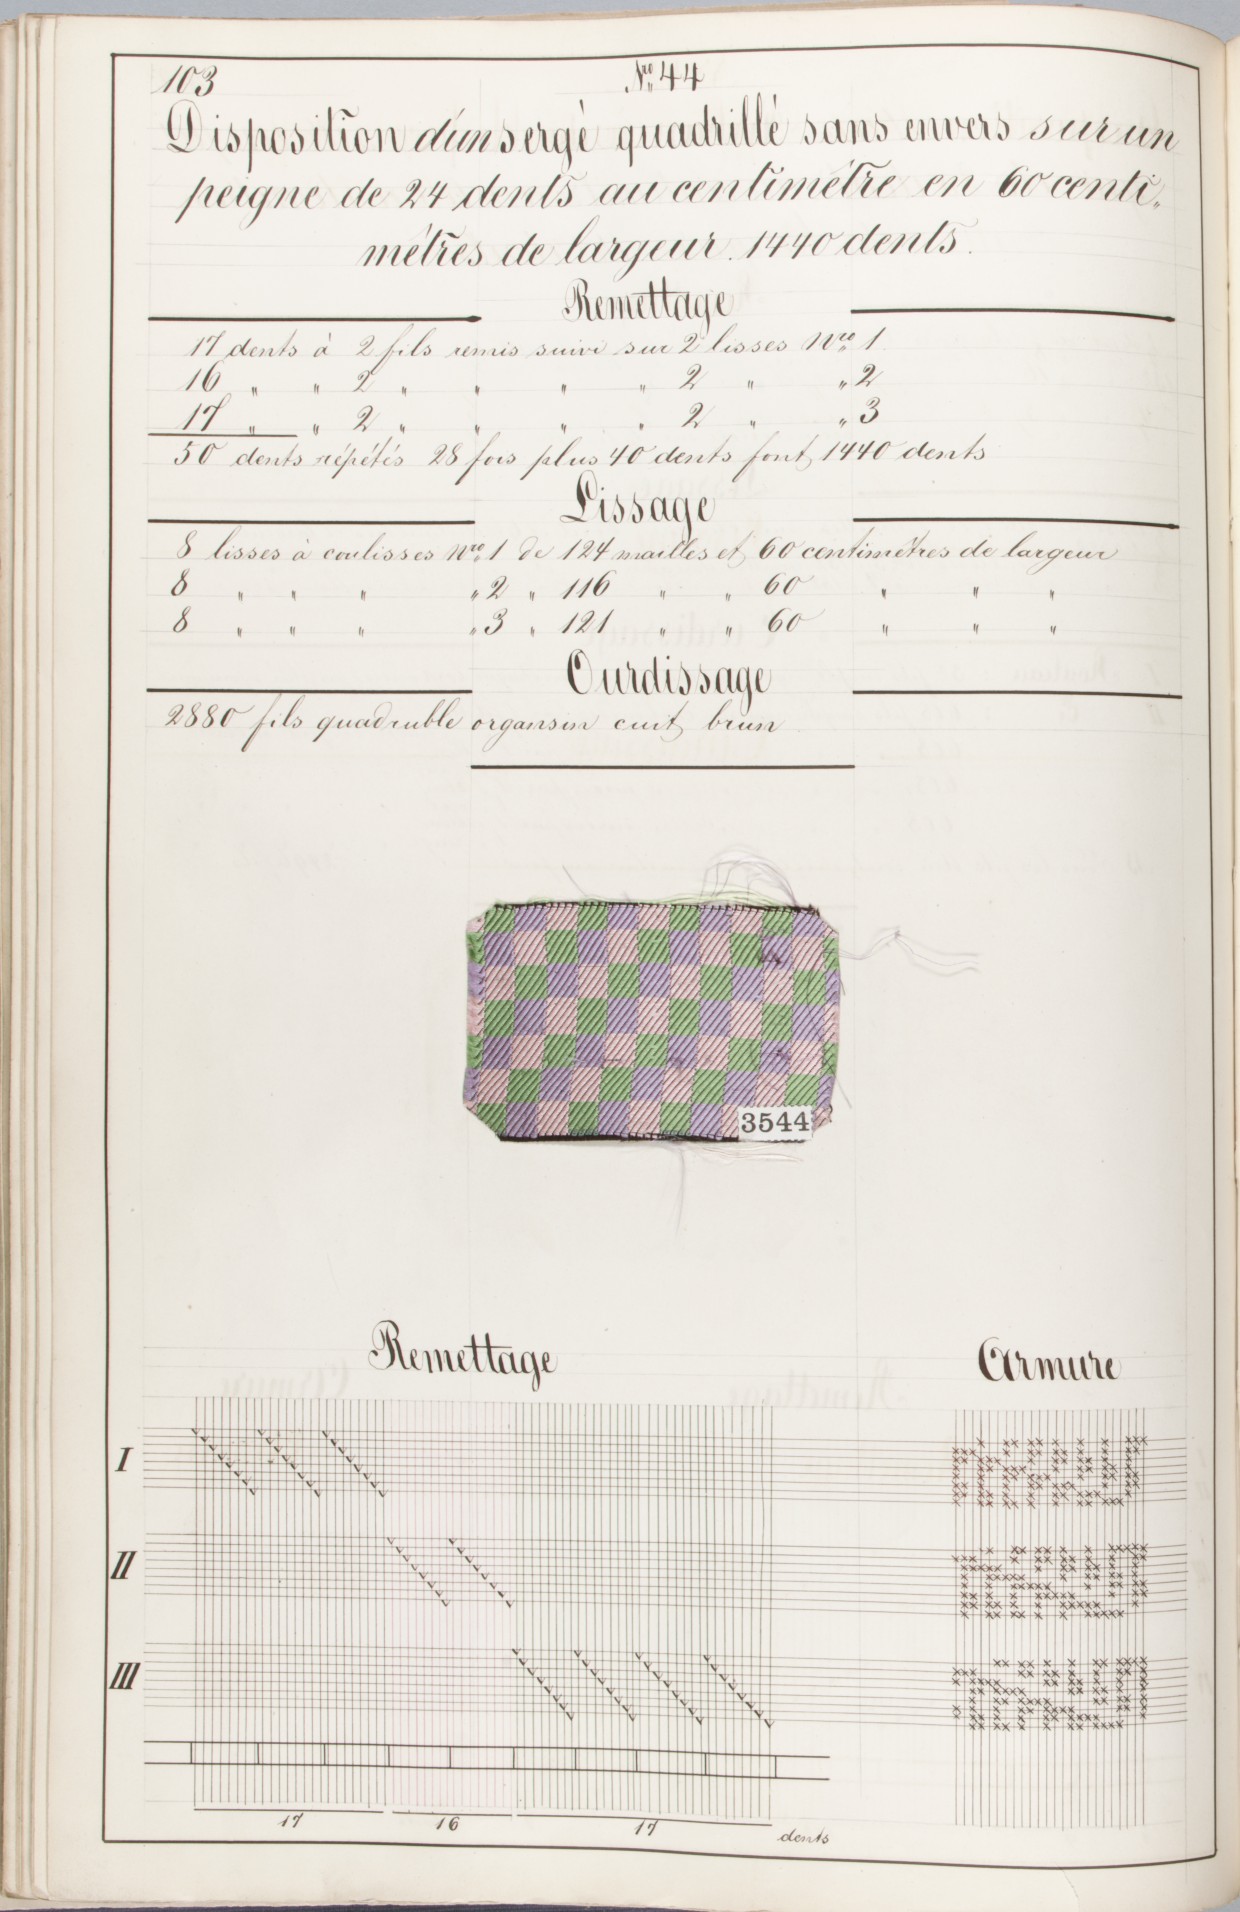 103 Nro 44
Disposition d'un sergé quadrillé sans envers sur un
peigne de 24 dents au centimétre en 60 centi„
métres de largeur. 1440 dents.
Remettage
17 dents à 2 fils remis suivi sur 2 lisses Nro 1
16 „ „ 2 „ „ „ „ 2 „ „ 2
17 „ „ 2 „ „ „ „ 2 „ „ 3
50 dents répétés 28 fois plus 40 dents font 1440 dents
Lissage
8 lisses à coulisses Nro 1 de 124 mailles et 60 centimétres de largeur
8 „ „ „ „ 2 „ 116 „ „ 60 „ „ „
8 „ „ „ „ 3 „ 121 „ „ 60 „ „ „
Ourdissage
2880 fils quadruble organsin cuit brun
3544
Remettage Armure
I
II
III
17 16 17 dents